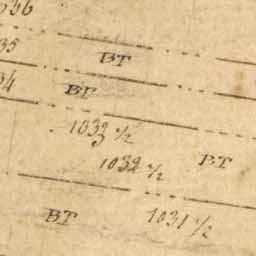 036
35
BT
34
BT
1033 1/2
1032 1/2
BT
BT
1031 1/2